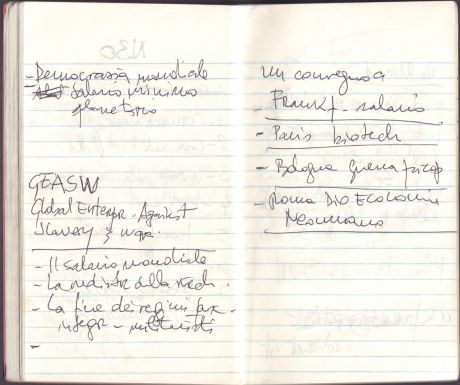 - Democrazia mondiale
salario minimo
planetario
GEASW
Global Enterpr. Against
slavery &
- Il salario mondiale
- La redistr. della
- La fine dei regimi
integr - militaristi
-
un convegno a
- Frankf - salario
- Paris biotech
- Bologna guerra
- Roma Bio Economia
Neoumano